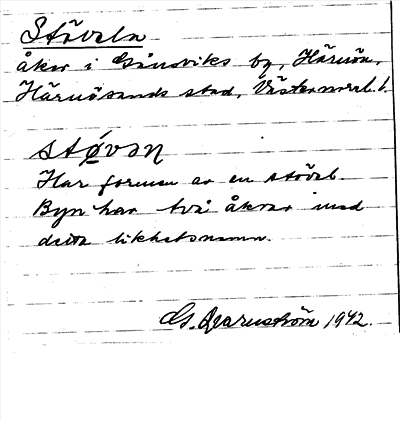 Stöveln
åker i Gånsviks by, Härnön,
Härnösands stad, Västernorrl. l.
støvən
Har formen av en stövel.
Byn har två åkrar med
detta likhetsnamn.
G. Qvarnström 1942.